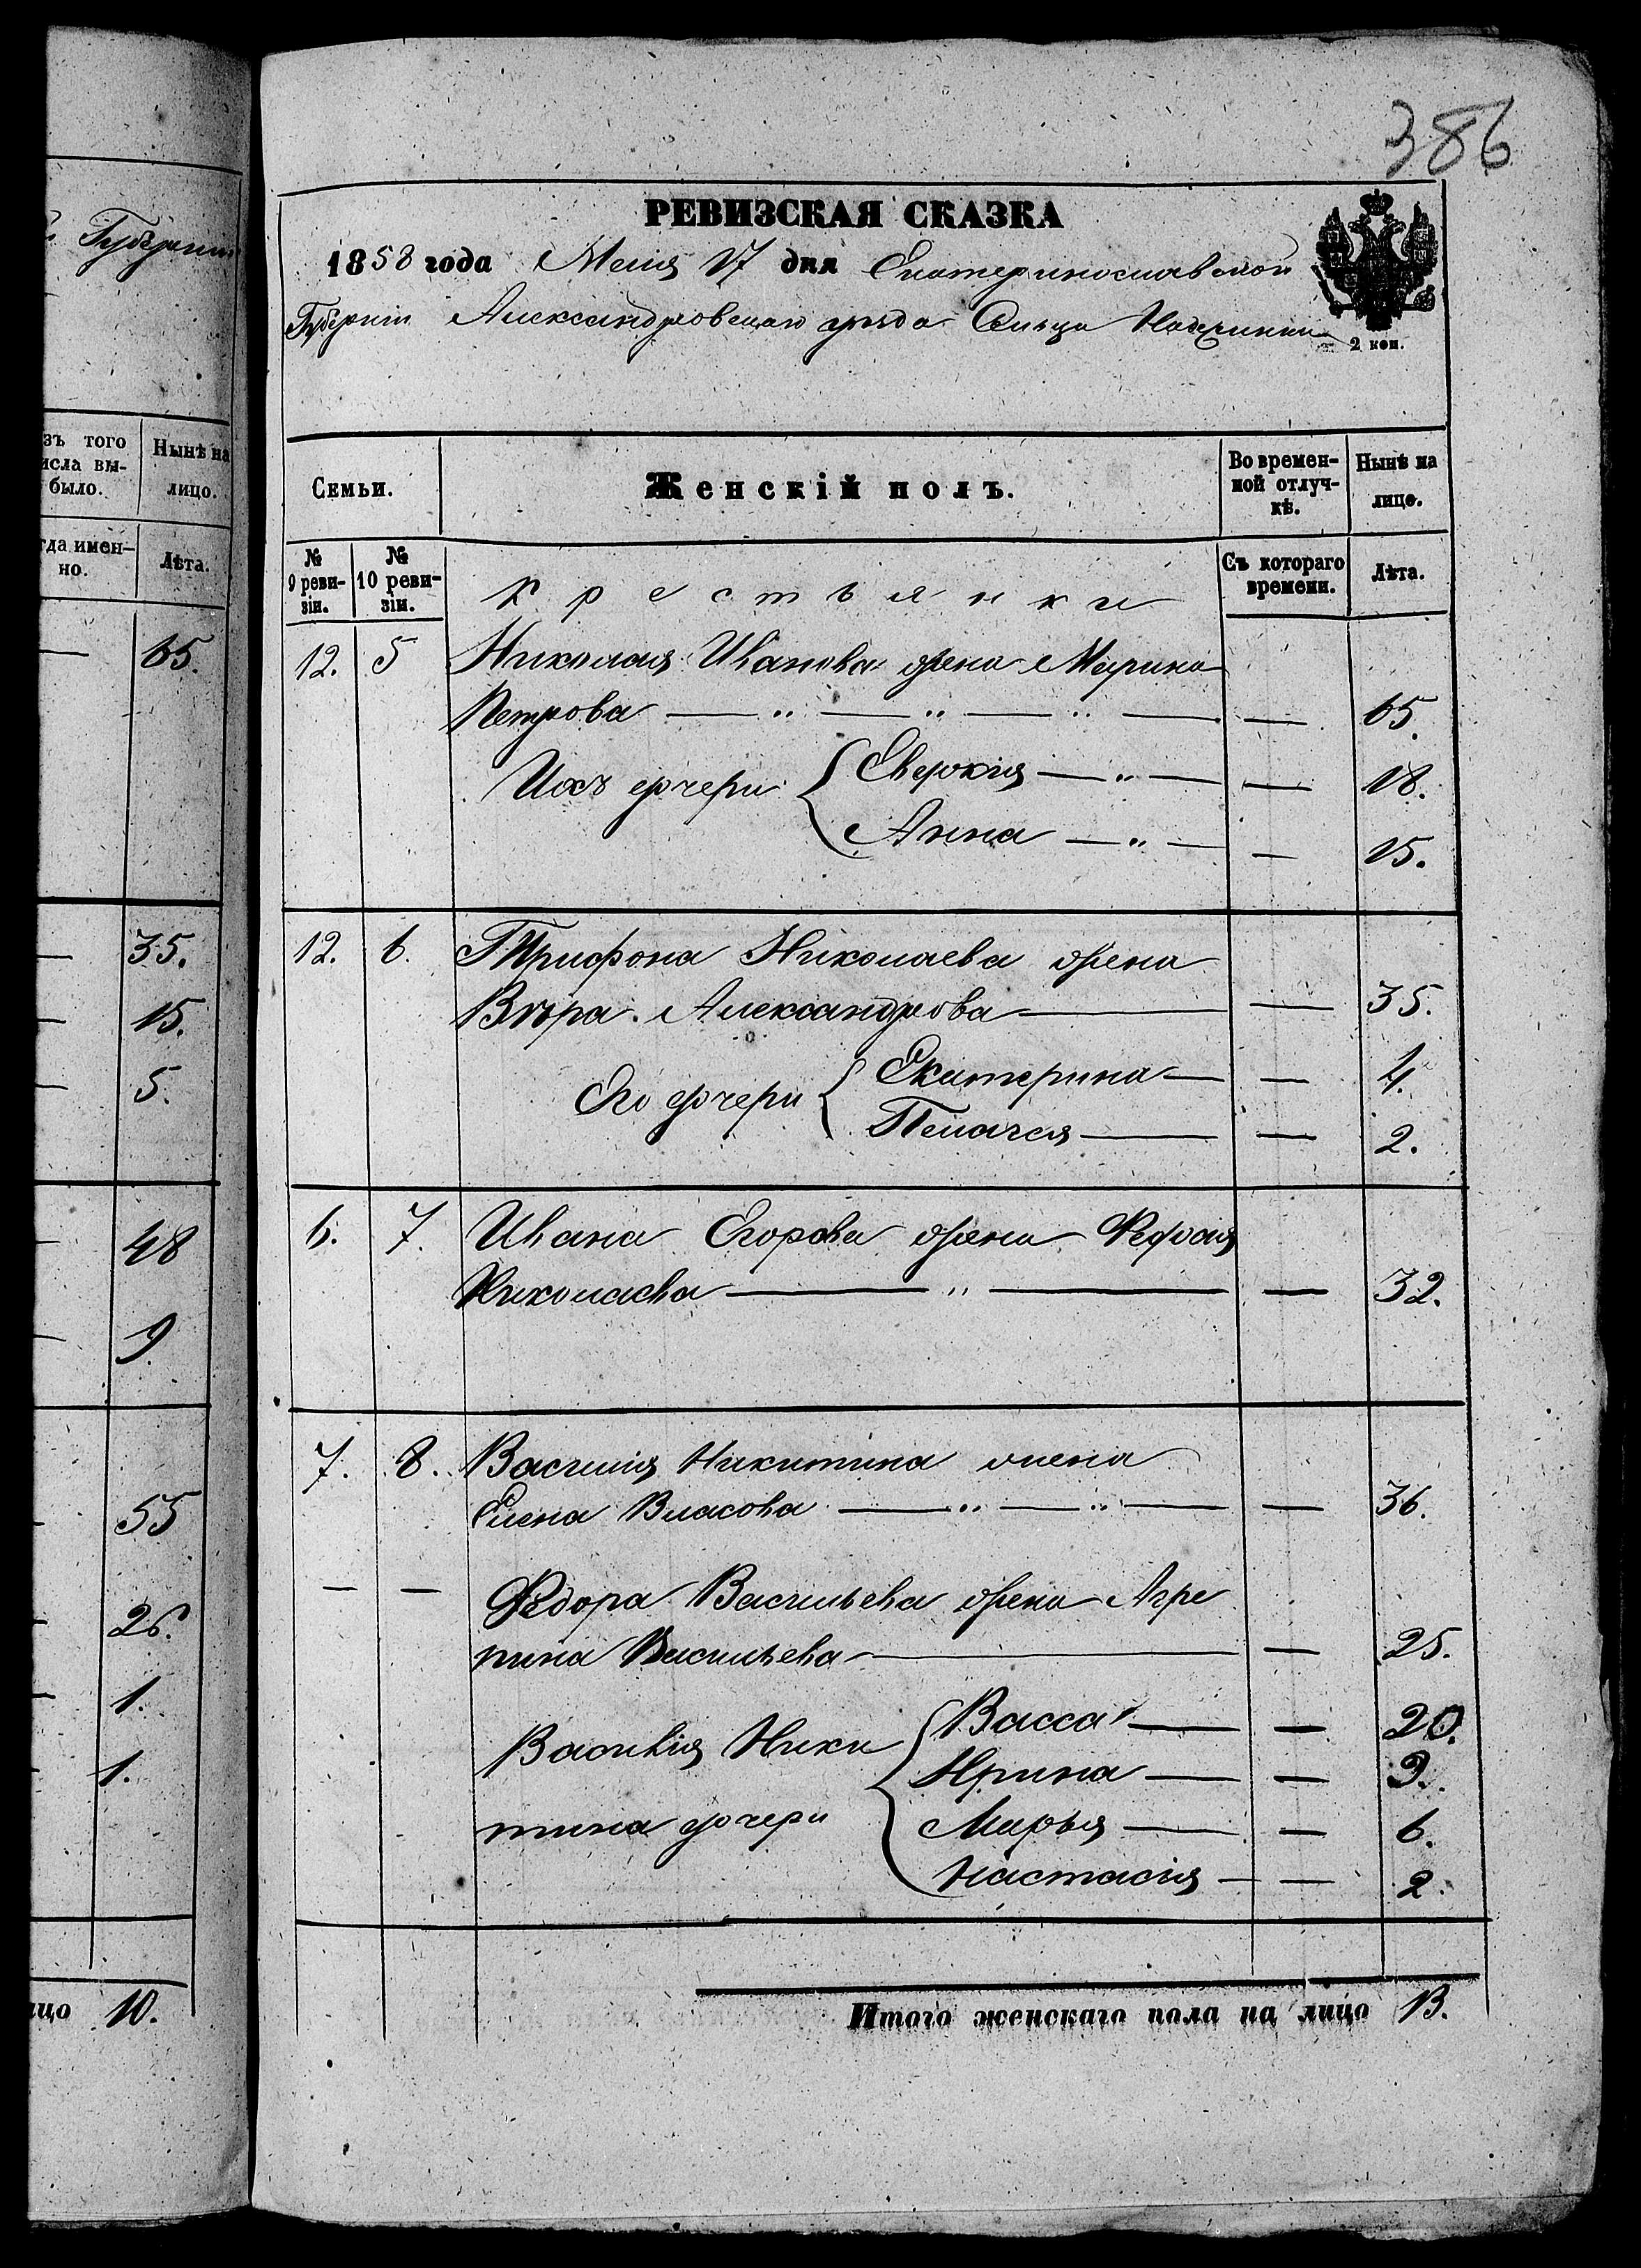 386
Губерніи
РЕВИЗСКАЯ СКАЗКА
1858 года Маія 17 дня Екатеринославской
Губерніи Александровскаго уѣзда Сельца
2 коп.
зъ того
исла вы-
было.
Нынѣ на
лицо.
гда имен-
но.
Лѣта.
65.
35.
15.
5.
48
9.
55
26.
1.
1.
ицо 10.
Семьи.
Женскій полъ.
Во времен-
ной отлуч-
кѣ.
Нынѣ на
лицо.
№
9 реви-
зіи.
№
10 реви-
зіи.
Крестьянки
Съ котораго
времени.
Лѣта.
12. 5 Николая Иванова жена Марина
Петрова — „ — „ — „ — — 65.
Ихъ дочери { Евдокія — „ — — 18.
Анна — „ — — 15.
12. 6. Трифона Николаева жена
Вѣра Александрова — — 35.
Его дочери { Екатерина — — 4.
Пелагея — — 2.
6. 7. Ивана Егорова жена
Николаева — „ — — 32.
7. 8. Василія Никитина жена
Елена Власова — „ — „ — — 36.
— — Федора Васильева жена Агре
пина Васильева — — 25.
Василія Ники
тина дочери
{ Васса — — 20.
Ирина — — 9.
Марья — — 6.
Настасія — — 2.
Итого женскаго пола на лицо 13.